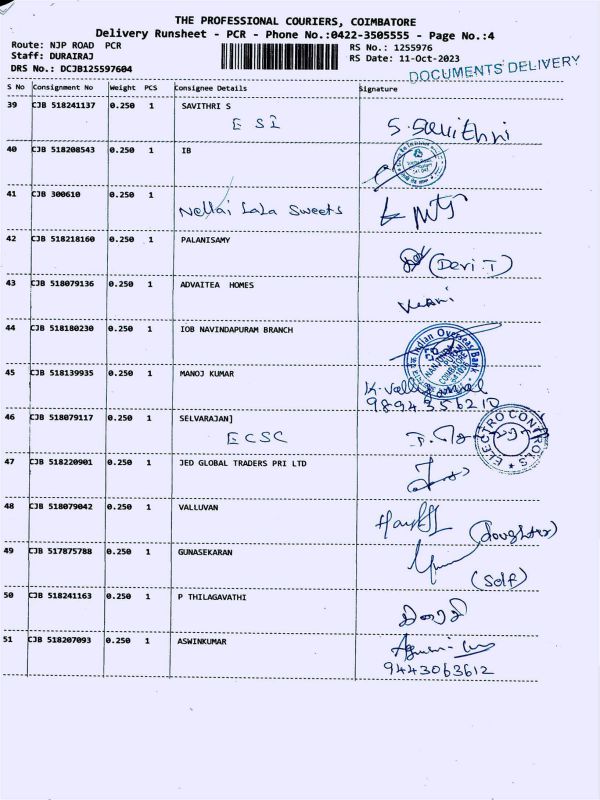 THE PROFESSIONAL COURIERS, COIMBATORE
Delivery Runsheet - PCR - Phone No.:0422-3505555 - Page No.:4
Route: NJP ROAD PCR
Staff: DURAIRAJ
DRS No.: DCJB125597604
RS No.: 1255976
RS Date: 11-Oct-2023
DOCUMENTS DELIVERY
S No Consignment No Weight PCS Consignee Details Signature
39 CJB 518241137 0.250 1 SAVITHRI S
E S I S. Savithri
40 CJB 518208543 0.250 1 IB
41 CJB 300610 0.250 1
Nellai LaLa Sweets
42 CJB 518218160 0.250 1 PALANISAMY
(Devi.T)
43 CJB 518079136 0.250 1 ADVAITEA HOMES
44 CJB 518180230 0.250 1 IOB NAVINDAPURAM BRANCH
Indian Overseas Bank
45 CJB 518139935 0.250 1 MANOJ KUMAR
9894356210
46 CJB 518079117 0.250 1 SELVARAJAN]
E C S C
ELECTRO CONTROLS
47 CJB 518220901 0.250 1 JED GLOBAL TRADERS PRI LTD
48 CJB 518079042 0.250 1 VALLUVAN
(daughter)
49 CJB 517875788 0.250 1 GUNASEKARAN
(Self)
50 CJB 518241163 0.250 1 P THILAGAVATHI
51 CJB 518207093 0.250 1 ASWINKUMAR
9443063612